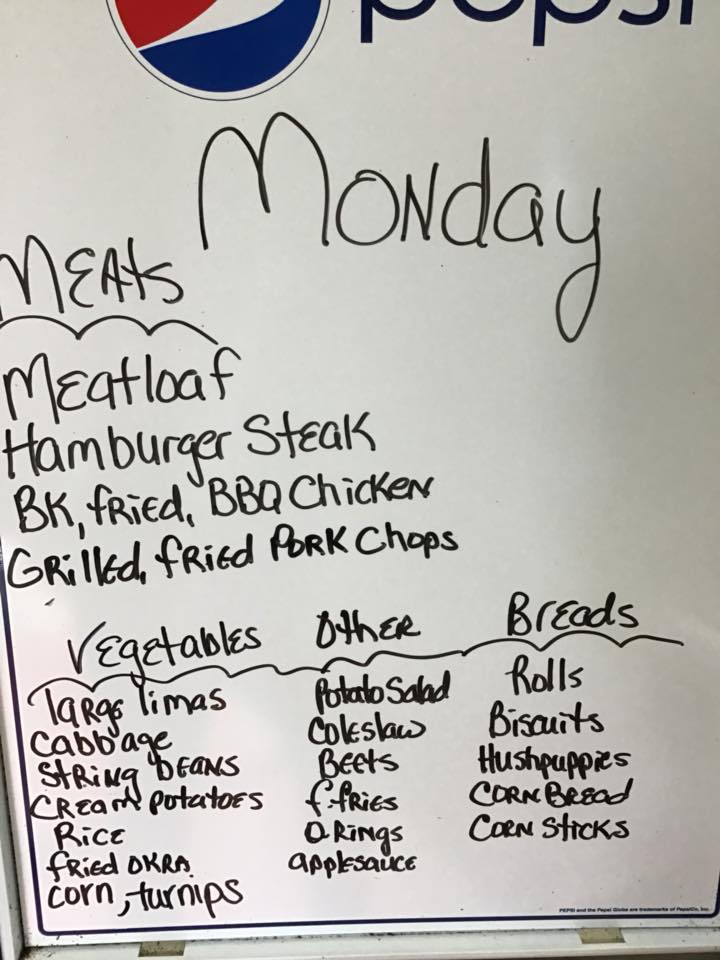 pepsi
Monday
Meats
Meatloaf
Hamburger Steak
BK, fried, BBQ Chicken
Grilled, fried Pork Chops
Vegetables
large limas
Cabbage
String beans
Cream potatoes
Rice
fried okra
corn, turnips
Other
Potato Salad
Coleslaw
Beets
f.fries
O.Rings
applesauce
Breads
Rolls
Biscuits
Hushpuppies
Corn Bread
Corn Sticks
PEPSI and the Pepsi Globe are trademarks of PepsiCo, Inc.